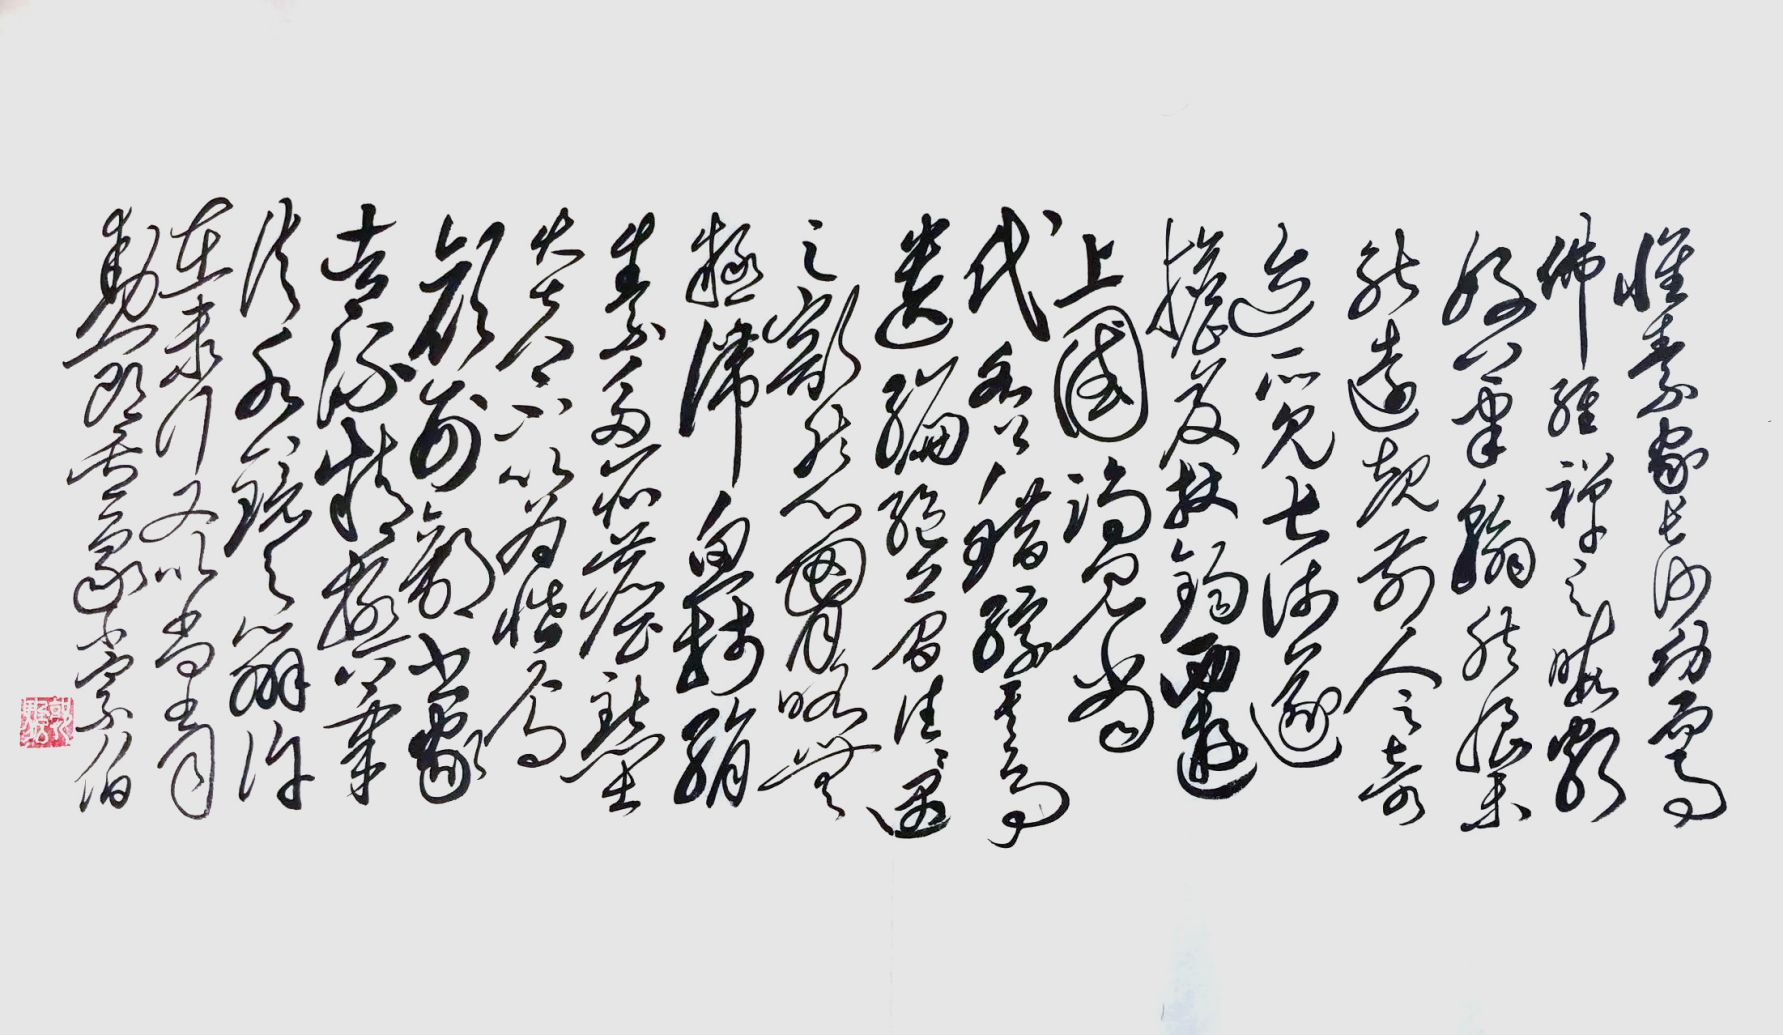 懷素家長沙幼而事
佛經禪之暇頗
好筆翰然恨未
能遠覩前人之奇
迹所見甚淺遂
擔笈杖錫西遊
上國謁見當
代名公錯綜其事
遺編絕簡往往遇
之豁然心胸略無
疑滯魚牋絹
素多所塵點士
大夫不以為怪焉
顏刑部書家
者流精極筆
法水鏡之辨許
在末行又以尚書司
勳郎盧象小宗伯